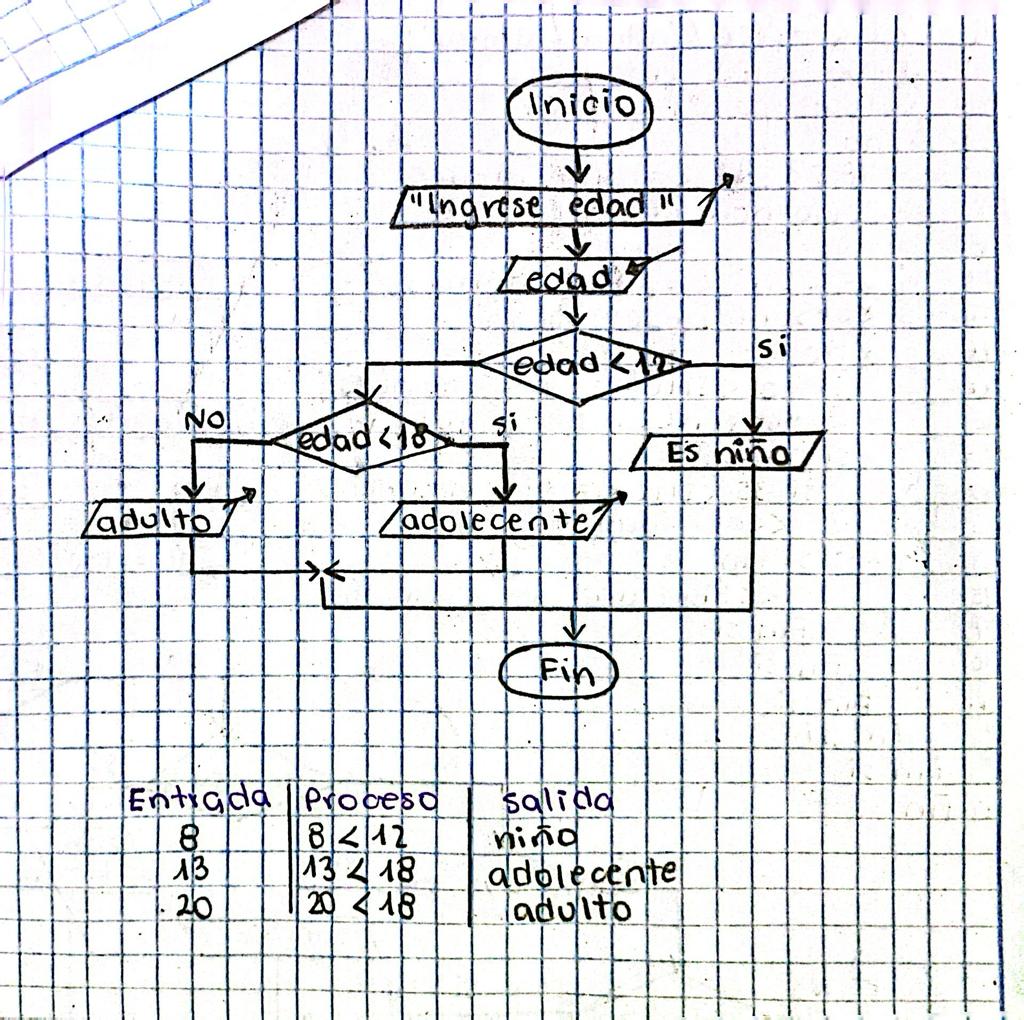 Inicio
"Ingrese edad"
edad
edad < 12
Si
edad < 18
NO
Si
Es niño
adulto
adolecente
Fin
Entrada Proceso Salida
8 8 < 12 niño
13 13 < 18 adolecente
20 20 < 18 adulto